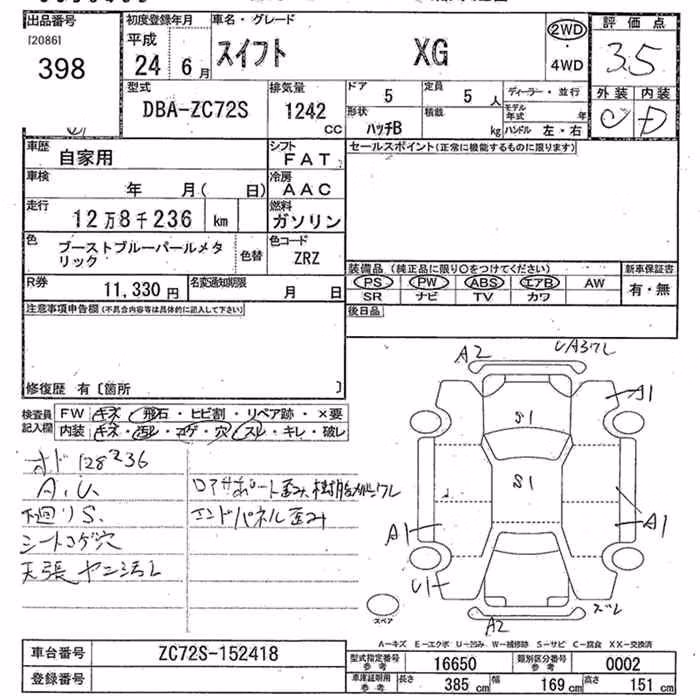 出品番号
[2086]
398
初度登録年月
平成
24 6月
車名・グレード
スイフト XG
2WD
・
4WD
評価点
3.5
外装 内装
C D
型式
DBA-ZC72S
排気量
1242
CC
ドア
5
定員
5 人
ディーラー・並行
形状
ハッチB
積載
kg
モデル年式 年
ハンドル 左・右
車歴
自家用
シフト
FAT
車検
年 月( 日)
冷房
AAC
走行
12万8千236 km
燃料
ガソリン
色
ブーストブルーパールメタ
リック
色替
色コード
ZRZ
R券
11,330 円
名変通知期限
月 日
セールスポイント(正常に機能するものに限ります)
装備品(純正品に限り〇をつけてください)
PS PW ABS エアB AW
SR ナビ TV カワ
新車保証書
有・無
後日品
注意事項申告欄(不具合内容等は具体的に記入して下さい)
修復歴 有〔箇所 〕
検査員
記入欄
FW キズ・飛石・ヒビ割・リペア跡・×要
内装 キズ・汚レ・コゲ・穴・スレ・キレ・破レ
オド 128236
A.U.
下廻りS.
シートコゲ穴
天張ヤニ汚レ
エンドパネル歪み
A2
A1
S1
S1
A1
A1
A2
スレ
スペア
A-キズ E-エクボ U-凹み W-補修跡 S-サビ C-腐食 XX-交換済
車台番号
ZC72S-152418
登録番号
型式指定番号
参考
16650
類別区分番号
参考
0002
車庫証明用
参考
長さ 385 cm 幅 169 cm 高さ 151 cm